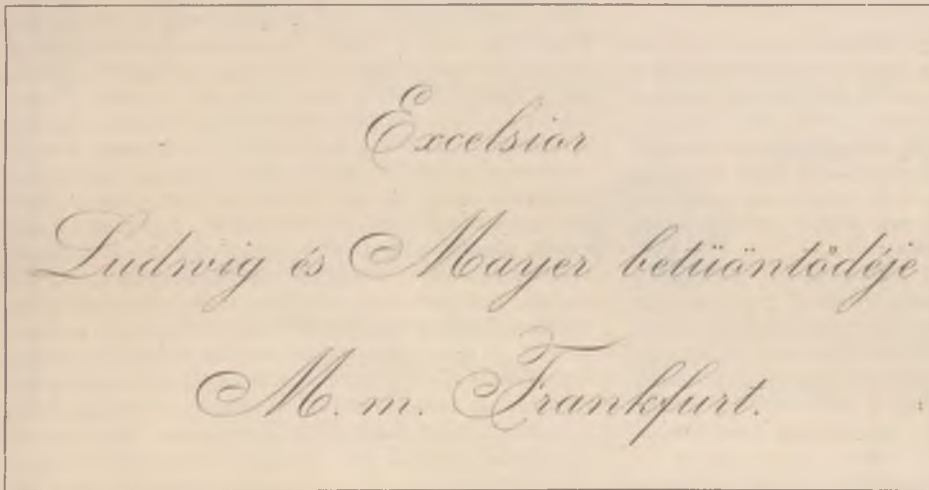 Excelsior
Ludwig és Mayer betüöntödéje
M. m. Frankfurt.